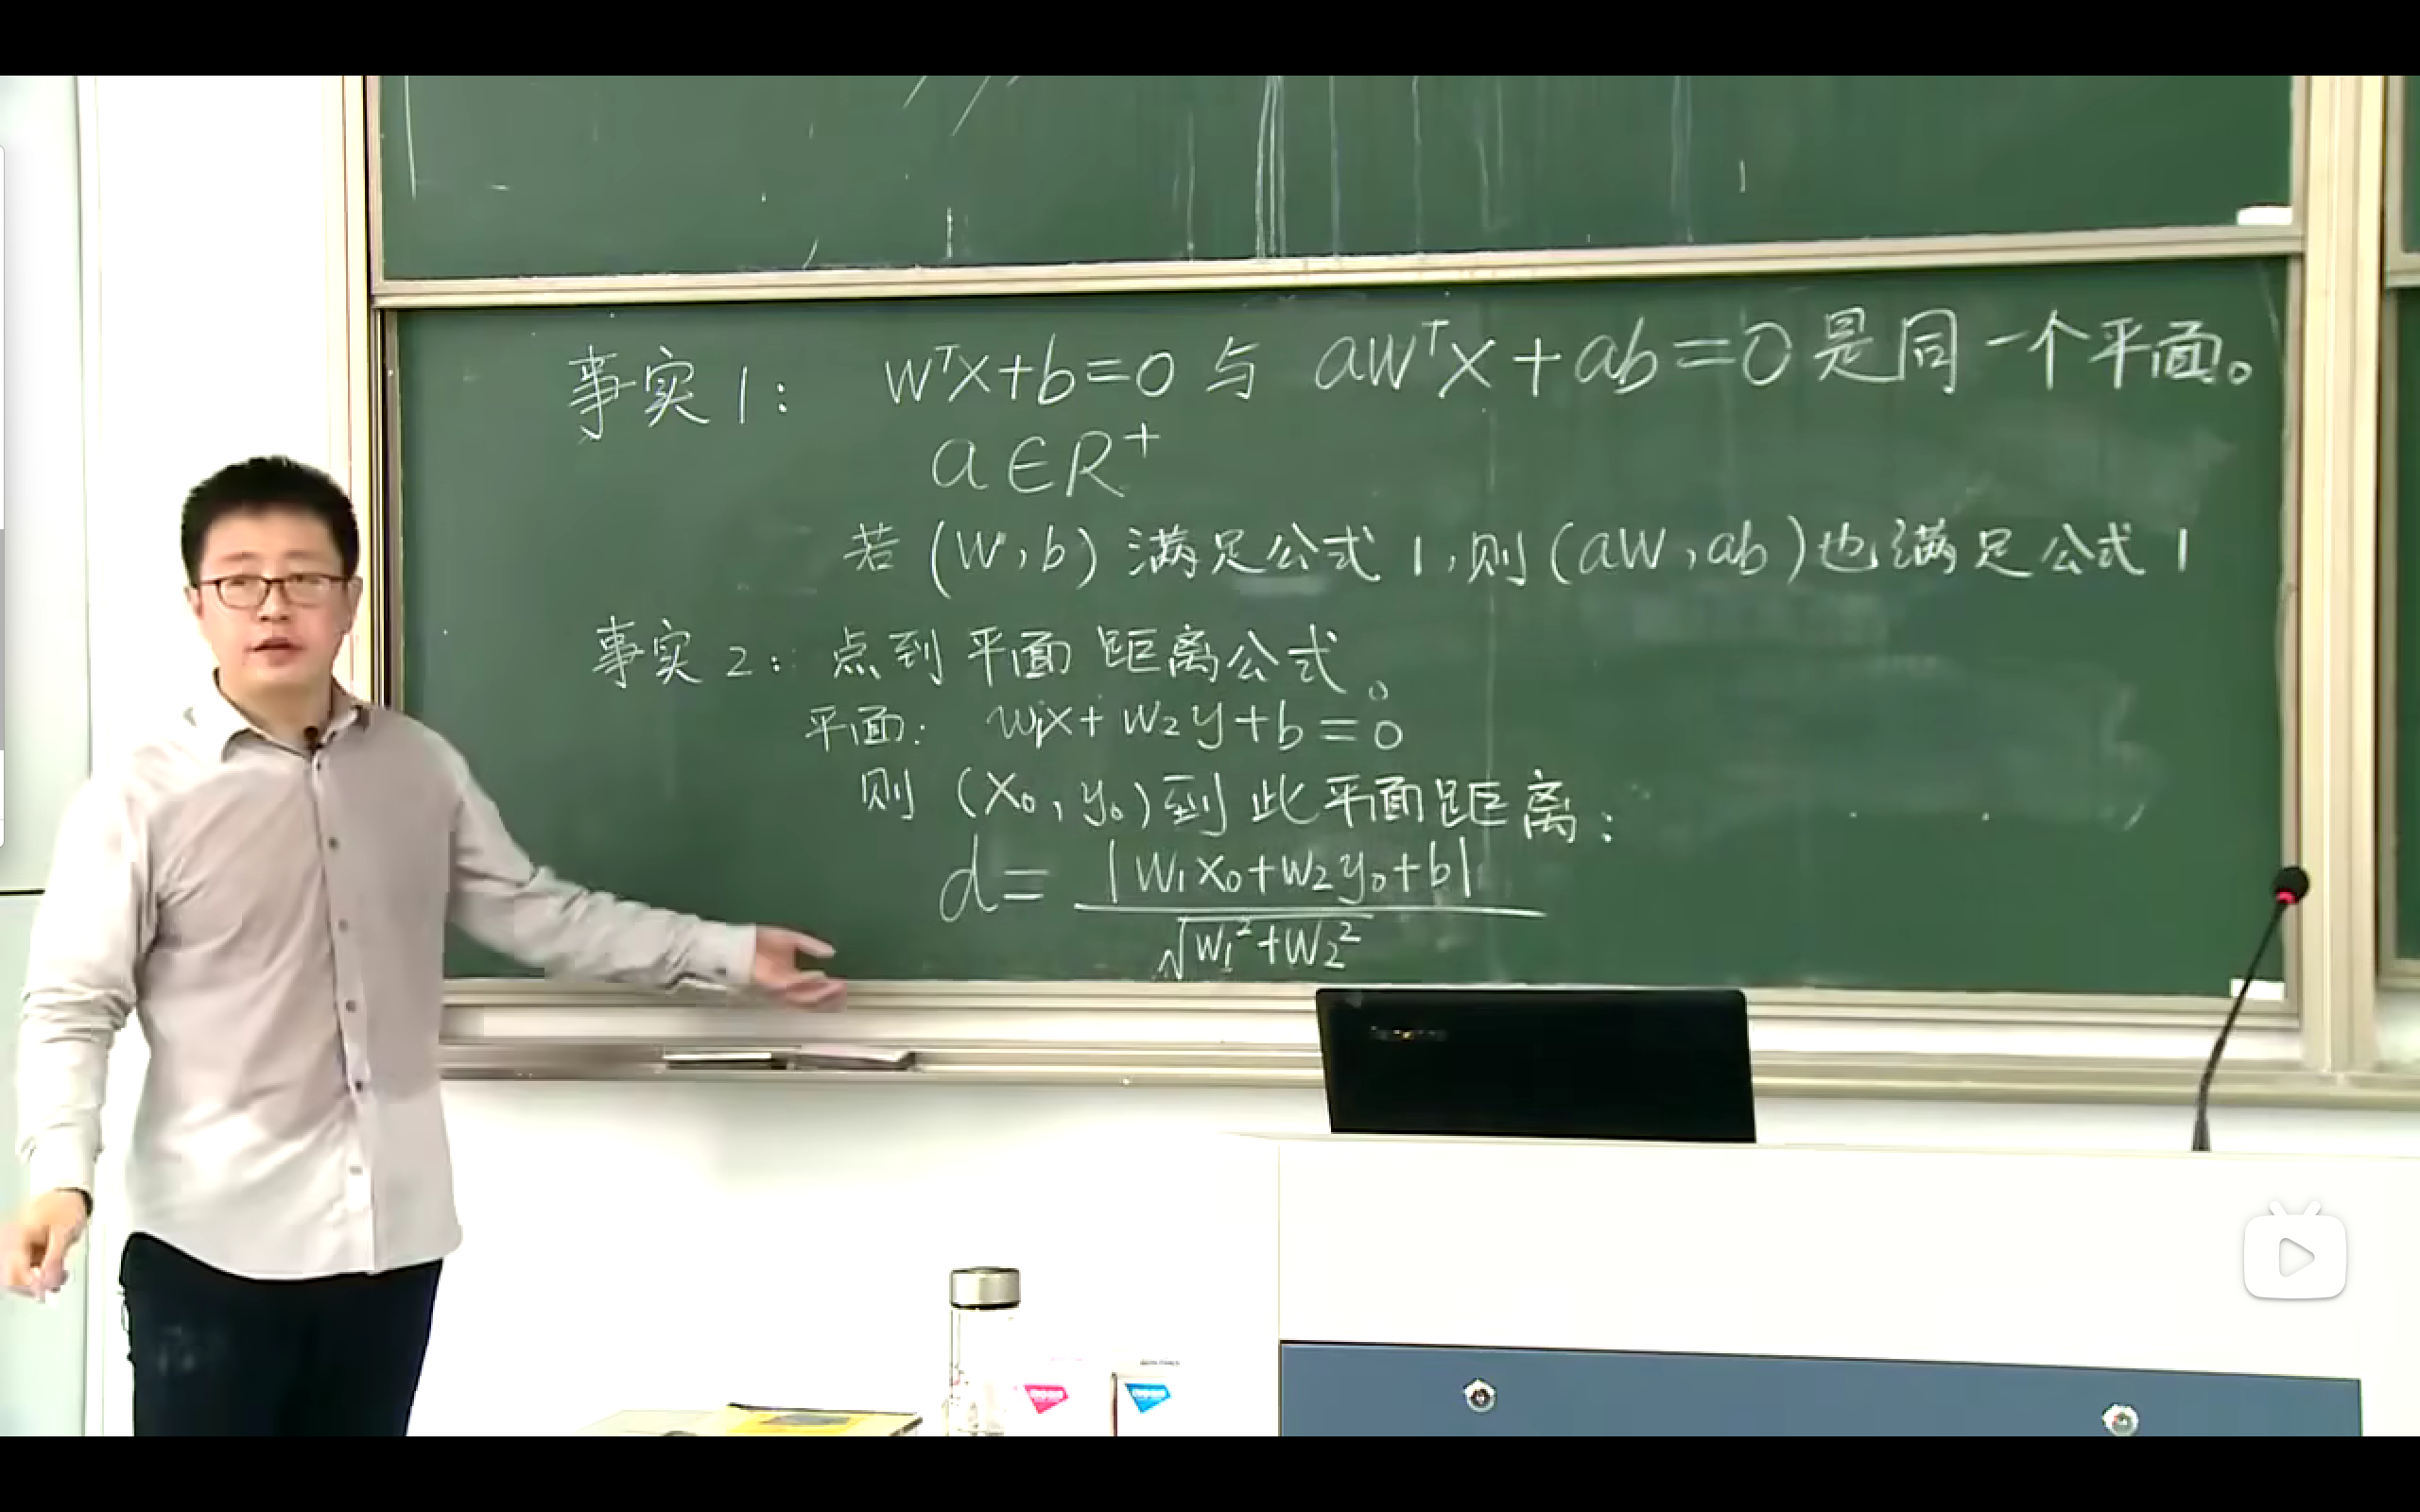 事实1: wᵀx+b=0 与 awᵀx+ab=0是同一个平面。
a∈R⁺
若(w,b)满足公式1,则(aw,ab)也满足公式1
事实2: 点到平面距离公式。
平面: w₁x+w₂y+b=0
则 (x₀,y₀)到此平面距离:
d= |w₁x₀+w₂y₀+b|
√w₁²+w₂²